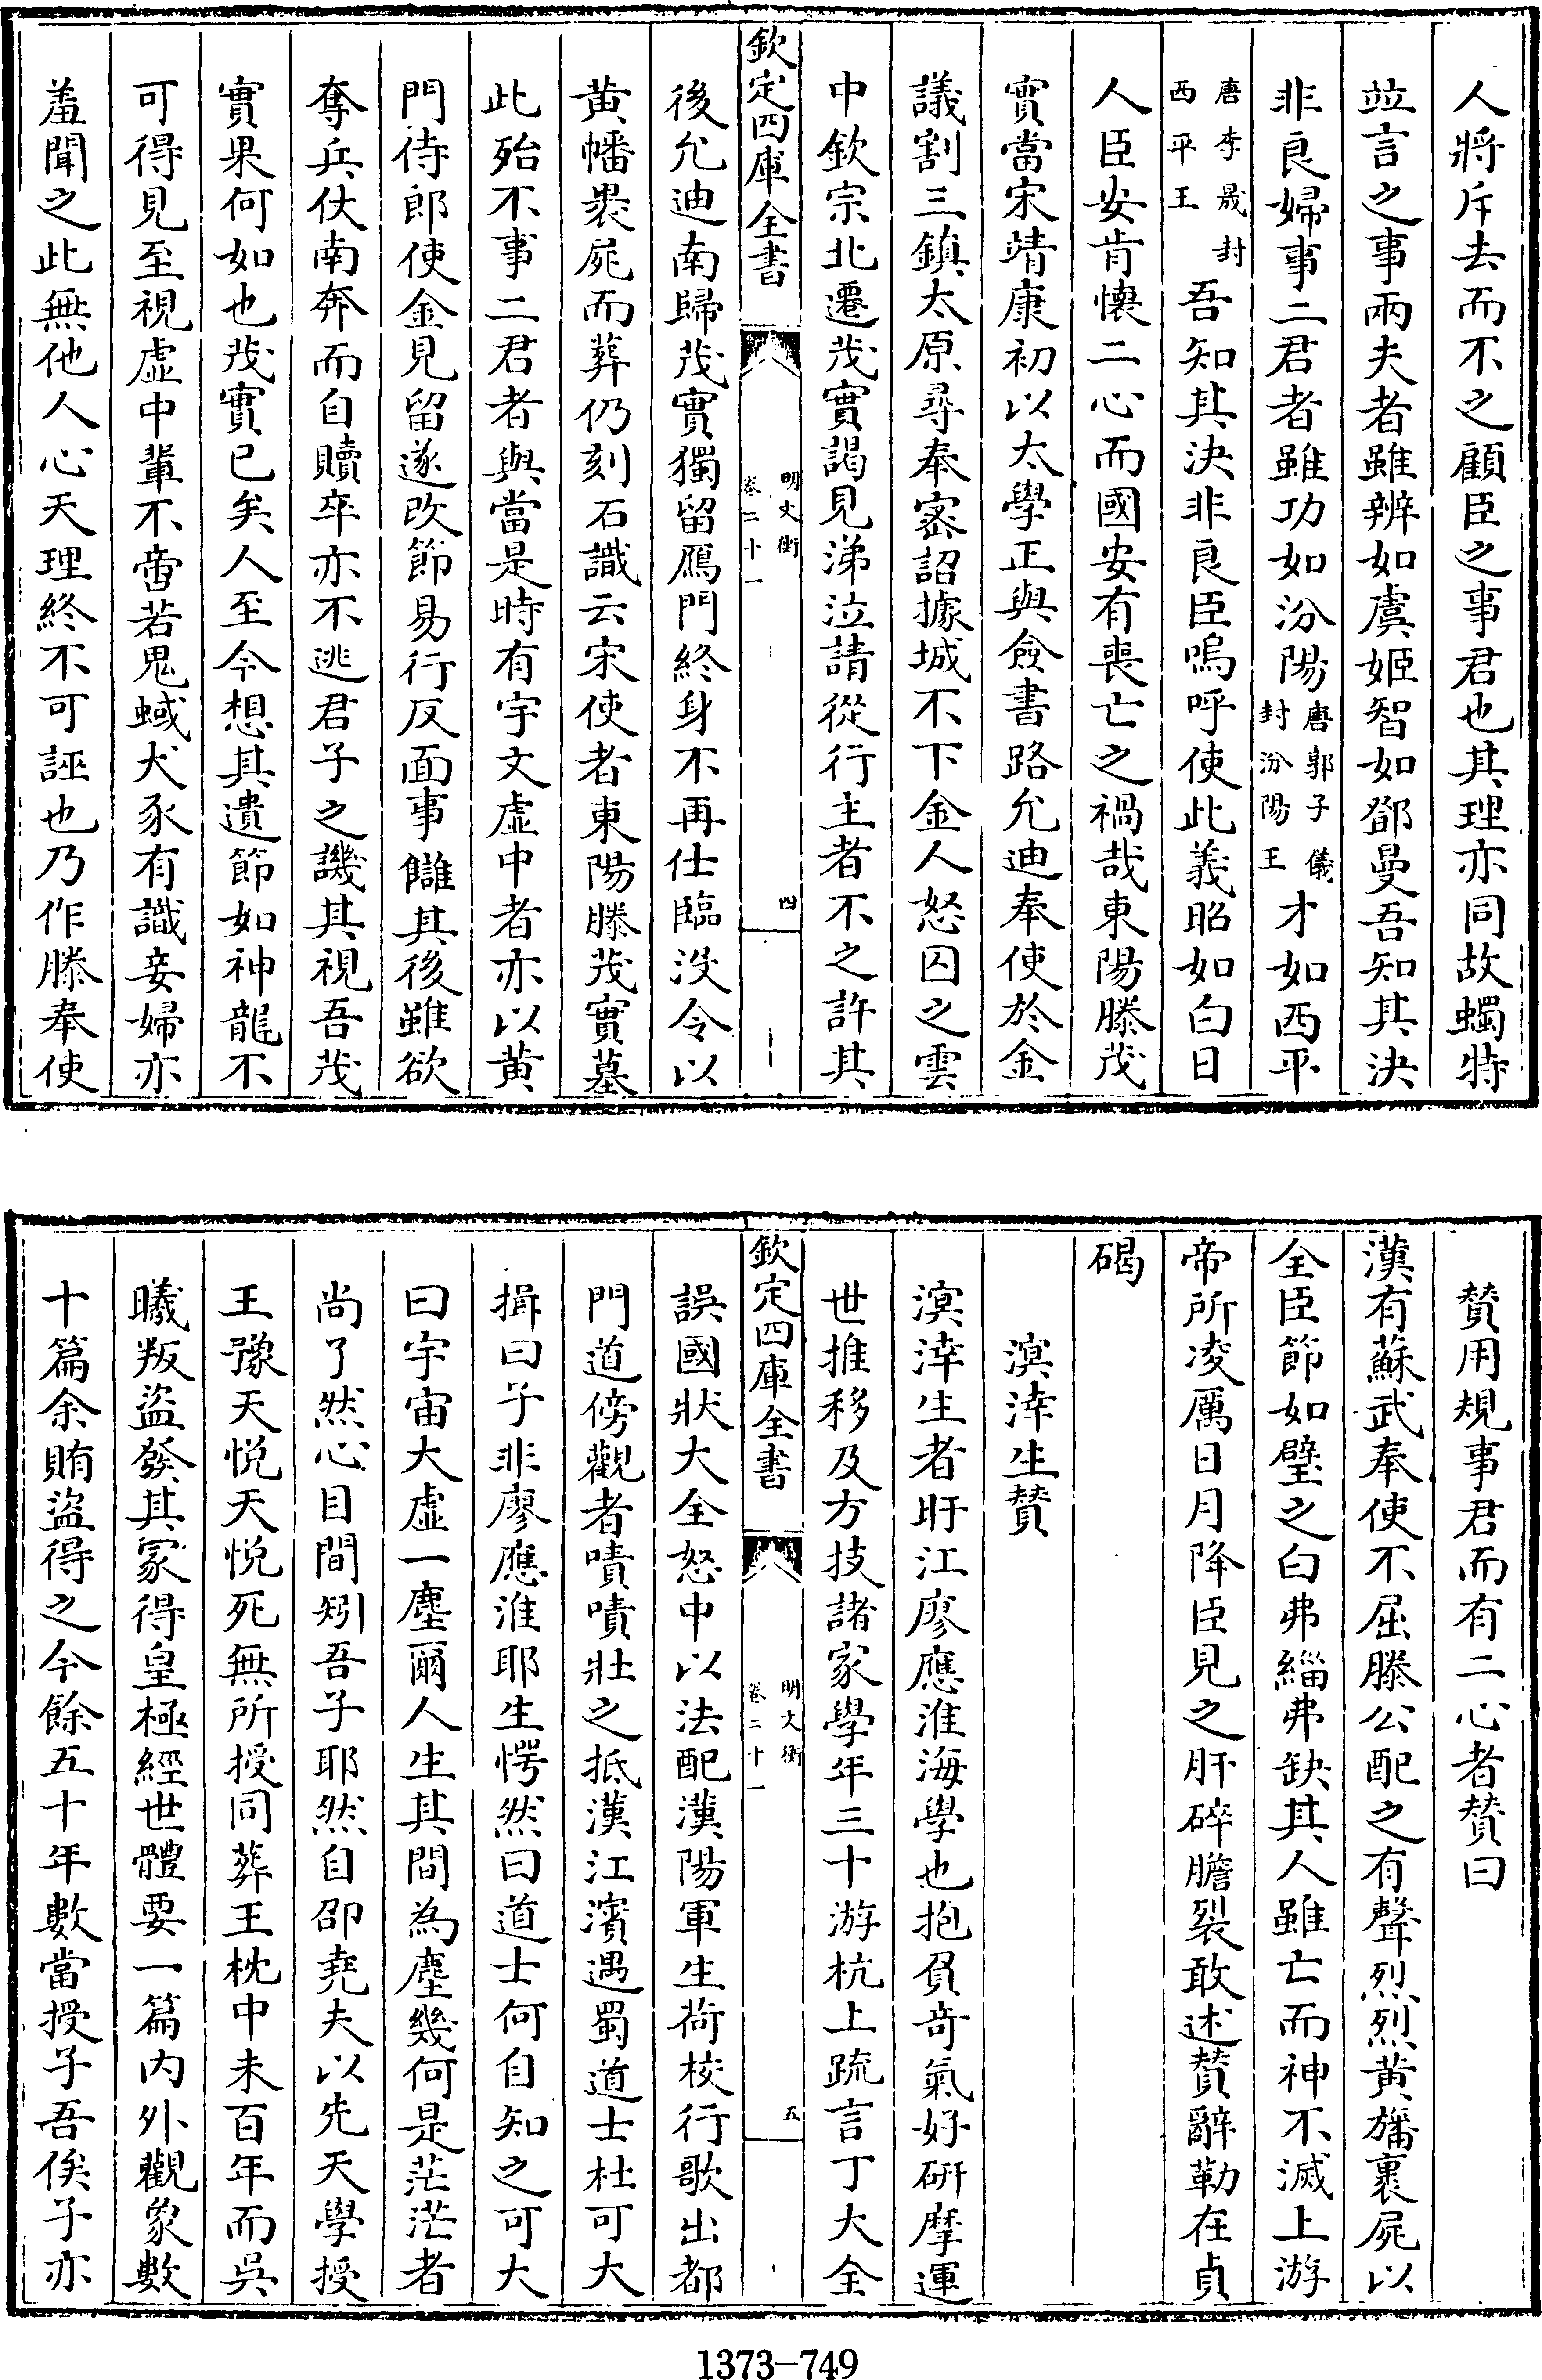 人將斥去而不之顧臣之事君也其理亦同故蠋特
竝言之事兩夫者雖辨如虞姬智如鄧曼吾知其決
非良婦事二君者雖功如汾陽唐郭子儀封汾陽王才如西平
唐李晟封西平王吾知其決非良臣嗚呼使此義昭如白日
人臣安肯懷二心而國安有喪亡之禍哉東陽滕茂
實當宋靖康初以太學正與僉書路允迪奉使於金
議割三鎮太原尋奉密詔據城不下金人怒囚之雲
中欽宗北遷茂實謁見涕泣請從行主者不之許其
欽定四庫全書
明文衡
卷二十一
四
後允迪南歸茂實獨留鴈門終身不再仕臨没令以
黄幡褁屍而葬仍刻石識云宋使者東陽滕茂實墓
此殆不事二君者與當是時有宇文虚中者亦以黄
門侍郎使金見留遂改節易行反面事讎其後雖欲
奪兵仗南奔而自贖卒亦不逃君子之譏其視吾茂
實果何如也茂實已矣人至今想其遺節如神龍不
可得見至視虚中輩不啻若鬼蜮犬豕有識妾婦亦
羞聞之此無他人心天理終不可誣也乃作滕奉使
賛用規事君而有二心者賛曰
漢有蘇武奉使不屈滕公配之有聲烈烈黄旛裹屍以
全臣節如璧之白弗緇弗缺其人雖亡而神不滅上游
帝所凌厲日月降臣見之肝碎膽裂敢述賛辭勒在貞
碣
溟涬生賛
溟涬生者盱江廖應淮海學也抱負竒氣好研摩運
世推移及方技諸家學年三十游杭上疏言丁大全
欽定四庫全書
明文衡
卷二十一
五
誤國狀大全怒中以法配漢陽軍生荷校行歌出都
門道傍觀者嘖嘖壯之抵漢江濱遇蜀道士杜可大
揖曰子非廖應淮耶生愕然曰道士何自知之可大
曰宇宙大虚一塵爾人生其間為塵幾何是茫茫者
尚了然心目間矧吾子耶然自邵堯夫以先天學授
王豫天悦天悦死無所授同葬王枕中未百年而吳
曦叛盜發其冢得皇極經世體要一篇内外觀象數
十篇余賄盜得之今餘五十年數當授子吾俟子亦
1373-749